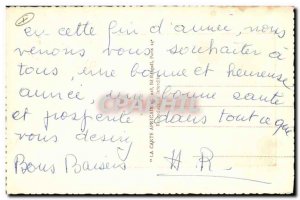 en cette fin d'année, nous
venons vous souhaiter à
tous, une bonne et heureuse
année, une bonne santé
et prospérité dans tout ce que
vous desirez
Bons Baisers H R.
"LA CARTE AFRICAINE"